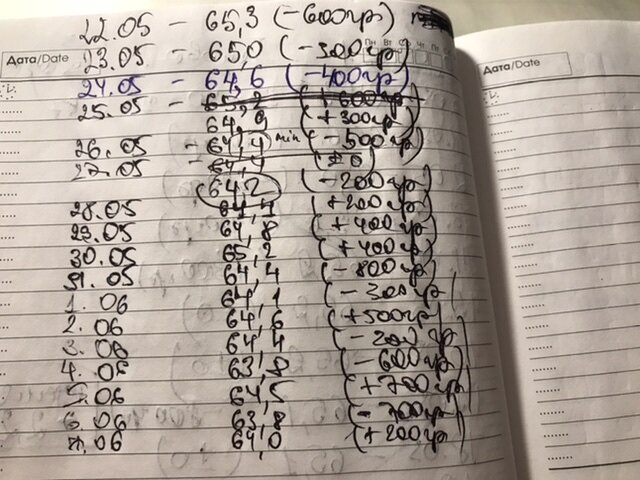 22.05 - 65,3 (-600гр)
Дата/Date
23.05 - 65,0 (-300гр)
24.05 - 64,6 (-400гр)
25.05 - 65,2 (+600гр)
64,9 (+300гр)
26.05 - 64,4 min (-500гр)
27.05 - 64,4
64,2 (-200гр)
28.05 64,4 (+200гр)
29.05 64,8 (+400гр)
30.05 65,2 (+400гр)
31.05 64,4 (-800гр)
1.06 64,1 (-300гр)
2.06 64,6 (+500гр)
3.06 64,4 (-200гр)
4.06 63,8 (-600гр)
5.06 64,5 (+700гр)
6.06 63,8 (-700гр)
7.06 64,0 (+200гр)
Дата/Date